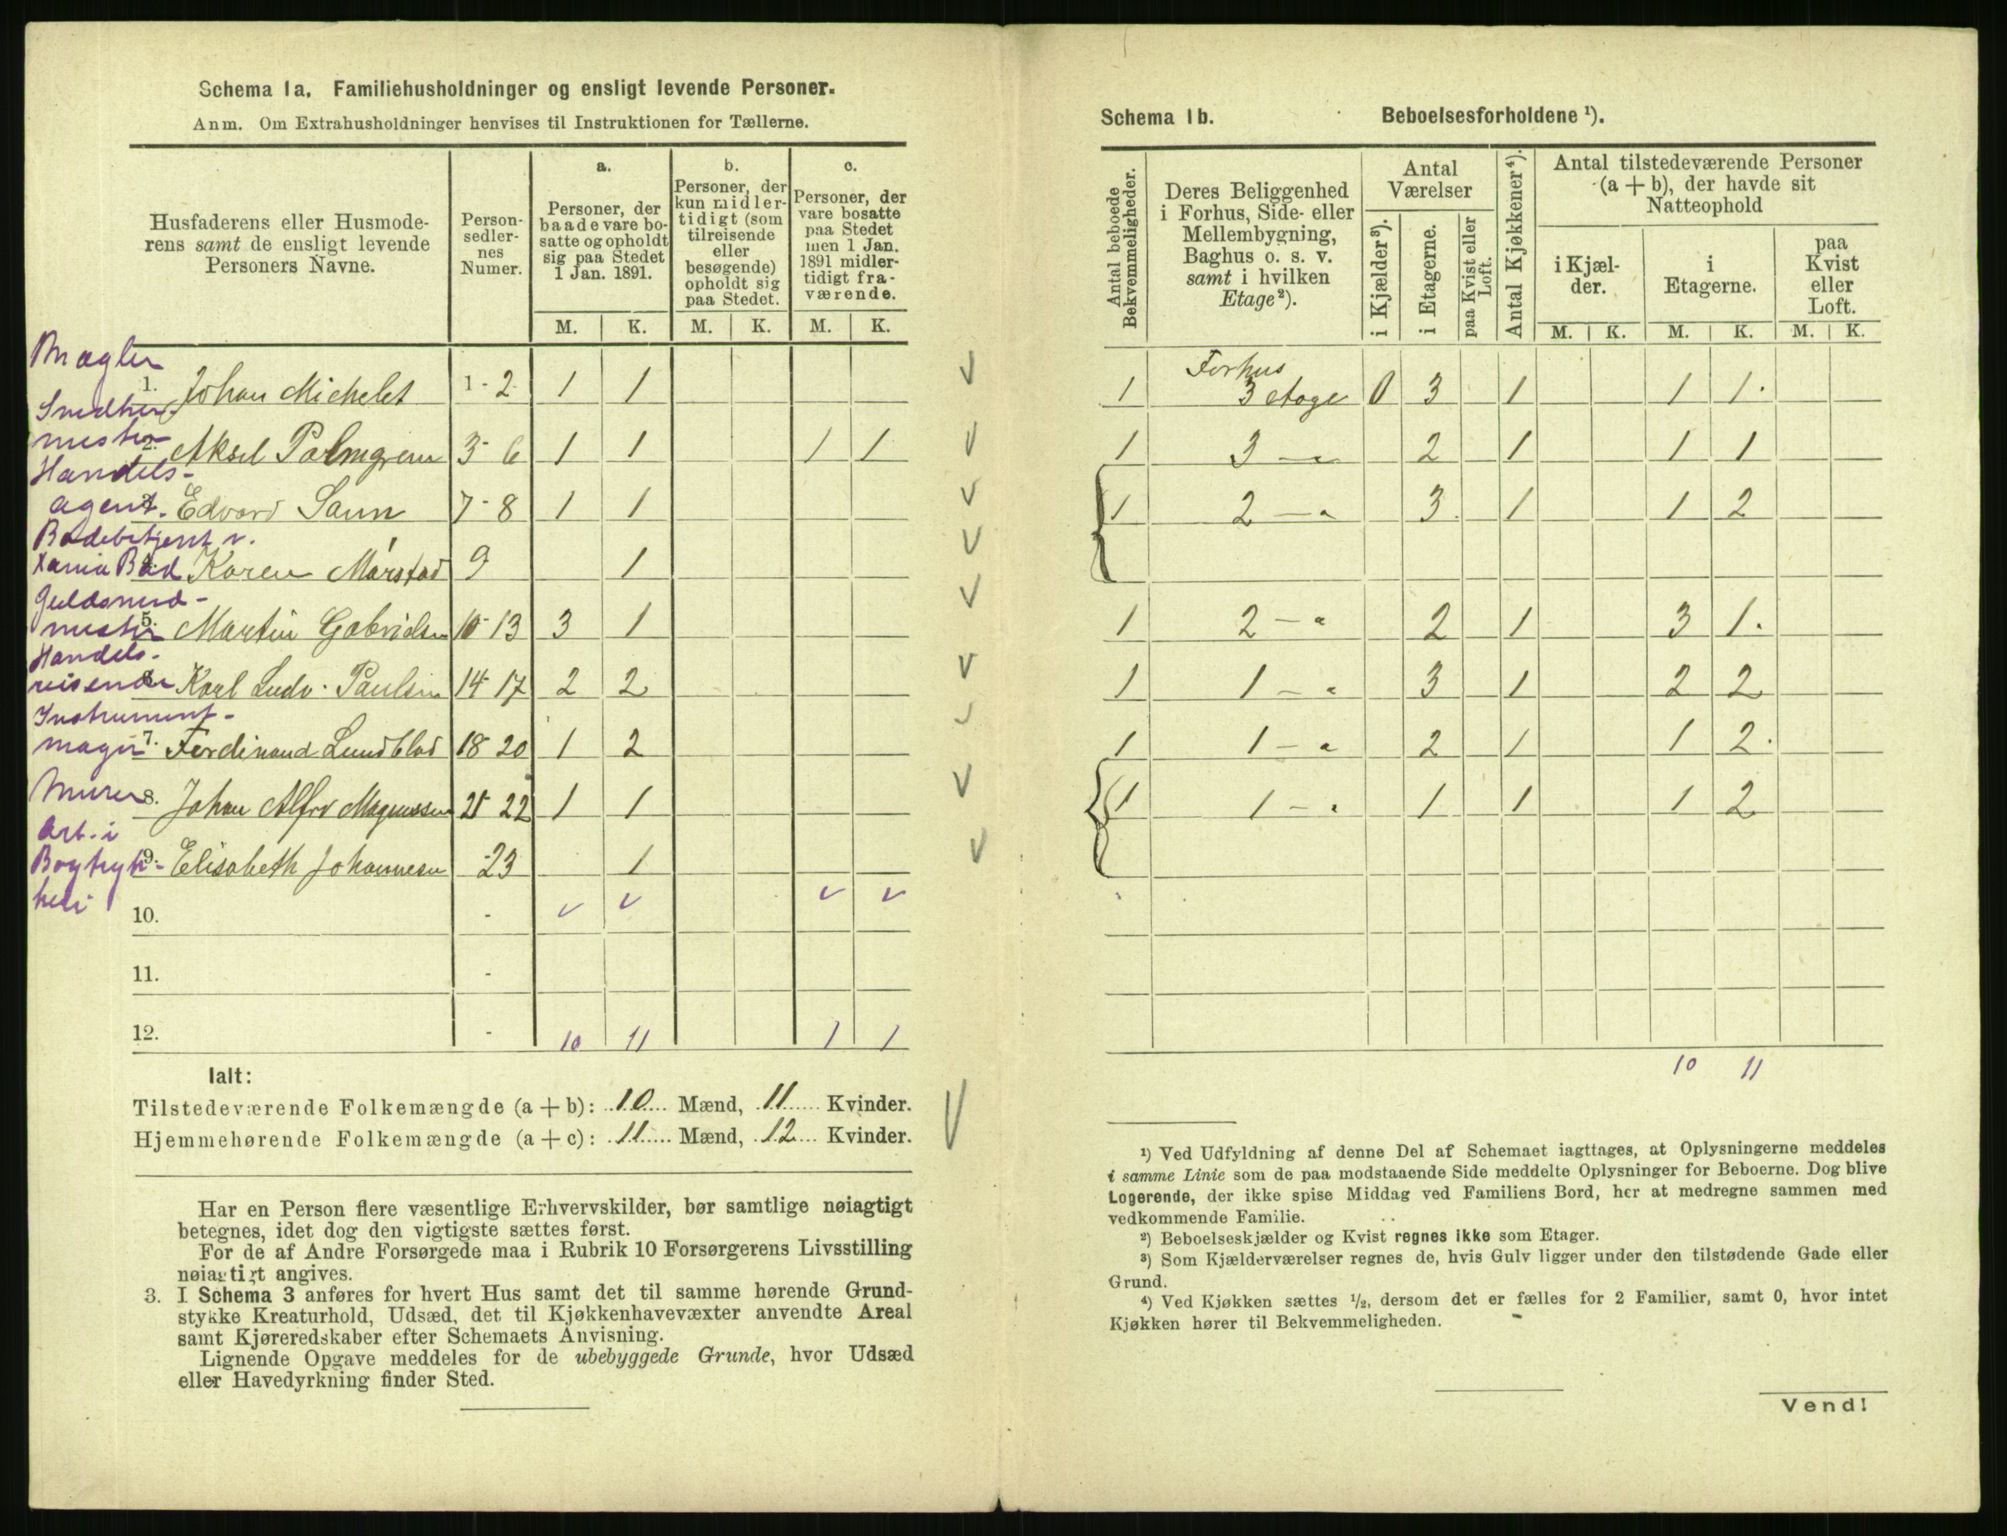 Schema 1a. Familiehusholdninger og ensligt levende Personer.
Anm. Om Extrahusholdninger henvises til Instruktionen for Tællerne.
Husfaderens eller Husmoderens samt de ensligt levende Personers Navne.
Personsedlernes Numer.
a.
Personer, der baade vare bosatte og opholdt sig paa Stedet 1 Jan. 1891.
b.
Personer, der kun midlertidigt (som tilreisende eller besøgende) opholdt sig paa Stedet.
c.
Personer, der vare bosatte paa Stedet men 1 Jan. 1891 midlertidigt fraværende.
M. K. M. K. M. K.
Mægler
1. Johan Michelet 1-2 1 1
Smedhermester
2. Aksel Palmgren 3-6 1 1 1 1
Handelsagent.
Edvard Saun 7-8 1 1
Badebetjent v. Xania Bad
Karen Mørstad 9 1
Guldsmedmester
5. Martin Gabrielsen 10-13 3 1
Handelsreisende
Karl Ludv. Paulsen 14-17 2 2
Instrumentmager
7. Ferdinand Lundblad 18-20 1 2
Murer
8. Johan Alfrd Magnussen 21-22 1 1
Arb. i Bogtrykkeri
9. Elisabeth Johannesen -23 1
10. -
11. -
12. - 10 11 1 1
Ialt:
Tilstedeværende Folkemængde (a + b): 10 Mænd, 11 Kvinder.
Hjemmehørende Folkemængde (a + c): 11 Mænd, 12 Kvinder.
Har en Person flere væsentlige Erhvervskilder, bør samtlige nøiagtigt
betegnes, idet dog den vigtigste sættes først.
For de af Andre Forsørgede maa i Rubrik 10 Forsørgerens Livsstilling
nøiagtigt angives.
3. I Schema 3 anføres for hvert Hus samt det til samme hørende Grund-
stykke Kreaturhold, Udsæd, det til Kjøkkenhavevæxter anvendte Areal
samt Kjøreredskaber efter Schemaets Anvisning.
Lignende Opgave meddeles for de ubebyggede Grunde, hvor Udsæd
eller Havedyrkning finder Sted.
Schema 1b. Beboelsesforholdene ¹).
Antal beboede Bekvemmeligheder.
Deres Beliggenhed i Forhus, Side- eller Mellembygning, Baghus o. s. v. samt i hvilken Etage²).
Antal Værelser
i Kjælder³).
i Etagerne.
paa Kvist eller Loft.
Antal Kjøkkener⁴).
Antal tilstedeværende Personer (a + b), der havde sit Natteophold
i Kjælder.
i Etagerne.
paa Kvist eller Loft.
M. K. M. K. M. K.
1 Forhus 3 etage 0 3 1 1 1.
1 3 -„ 2 1 1 1
1 2 -„ 3 1 1 2
1 2 -„ 2 1 3 1.
1 1 -„ 3 1 2 2
1 1 -„ 2 1 1 2.
1 1 -„ 1 1 1 2
10 11
¹) Ved Udfyldning af denne Del af Schemaet iagttages, at Oplysningerne meddeles
i samme Linie som de paa modstaaende Side meddelte Oplysninger for Beboerne. Dog blive
Logerende, der ikke spise Middag ved Familiens Bord, her at medregne sammen med
vedkommende Familie.
²) Beboelseskjælder og Kvist regnes ikke som Etager.
³) Som Kjælderværelser regnes de, hvis Gulv ligger under den tilstødende Gade eller
Grund.
⁴) Ved Kjøkken sættes ½, dersom det er fælles for 2 Familier, samt 0, hvor intet
Kjøkken hører til Bekvemmeligheden.
Vend!